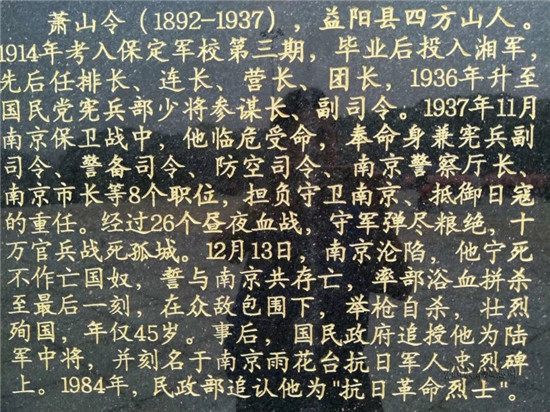 萧山令（1892-1937），益阳县四方山人。
1914年考入保定军校第三期，毕业后投入湘军，
先后任排长、连长、营长、团长，1936年升至
国民党宪兵部少将参谋长、副司令。1937年11月
南京保卫战中，他临危受命，奉命身兼宪兵副
司令、警备司令、防空司令、南京警察厅长、
南京市长等8个职位，担负守卫南京、抵御日寇
的重任。经过26个昼夜血战，守军弹尽粮绝，十
万官兵战死孤城。12月13日，南京沦陷，他宁死
不作亡国奴，誓与南京共存亡，率部浴血拼杀
至最后一刻，在众敌包围下，举枪自杀，壮烈
殉国，年仅45岁。事后，国民政府追授他为陆
军中将，并刻名于南京雨花台抗日军人忠烈碑
上。1984年，民政部追认他为"抗日革命烈士"。